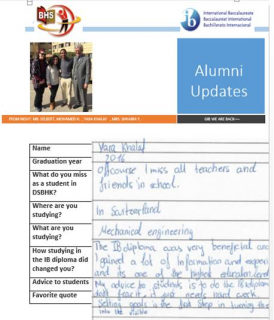 BHS
International Baccalaureate
Baccalauréat International
Bachillerato Internacional
Alumni
Updates
Name Yara Khalaf
Graduation year 2016
What do you miss as a student in DSBHK? Offcourse I miss all teachers and friends in school.
Where are you studying? In Switzerland
What are you studying? Mechanical engineering
How studying in the IB diploma did changed you? The IB diploma was very beneficial and I gained a lot of information and and its one of the highest
Advice to students My advice to students is to do the IB diploma don't fear it, it just needs hard work.
Favorite quote Setting goals is the first step in turning the into the visible